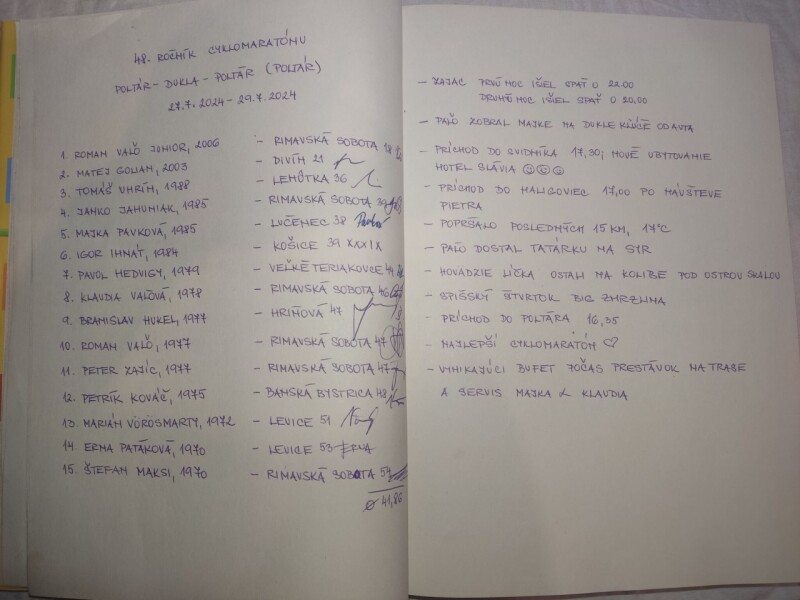 48. ROČNÍK CYKLOMARATÓNU
POLTÁR - DUKLA - POLTÁR (POLTÁR)
27.7.2024 - 29.7.2024
1. ROMAN VALO JUNIOR, 2006 - RIMAVSKÁ SOBOTA 18
2. MATEJ GOLIAN, 2003 - DIVÍN 21
3. TOMÁŠ UHRÍN, 1988 - LEHÔTKA 36
4. JANKO JAHUNIAK, 1985 - RIMAVSKÁ SOBOTA 39
5. MAJKA PAVKOVÁ, 1985 - LUČENEC 38
6. IGOR IHNÁT, 1984 - KOŠICE 39 XXXIX
7. PAVOL HEDVIGY, 1979 - VEĽKÉ TERIAKOVCE 44
8. KLAUDIA VAĽOVÁ, 1978 - RIMAVSKÁ SOBOTA 46
9. BRANISLAV HUKEL, 1977 - HRIŇOVÁ 47
10. ROMAN VAĽO, 1977 - RIMAVSKÁ SOBOTA 47
11. PETER ZAJÍC, 1977 - RIMAVSKÁ SOBOTA 47
12. PETRÍK KOVÁČ, 1975 - BANSKÁ BYSTRICA 48
13. MARIÁN VÖRÖSMARTY, 1972 - LEVICE 51
14. ERNA PATÁKOVÁ, 1970 - LEVICE 53 ERNA
15. ŠTEFAN MAKSI, 1970 - RIMAVSKÁ SOBOTA 54
Ø 41,86
- ZAJAC PRVÚ NOC IŠIEL SPAŤ O 22.00
DRUHÚ NOC IŠIEL SPAŤ O 20.00
- PAĽO ZOBRAL MAJKE NA DUKLE KĽÚČE OD AUTA
- PRÍCHOD DO SVIDNÍKA 17,30; NOVÉ UBYTOVANIE
HOTEL SLÁVIA ☺☺☺
- PRÍCHOD DO HALIGOVIEC 17,00 PO NÁVŠTEVE
PIETRA
- POPRŠALO POSLEDNÝCH 15 KM, 17°C
- PAĽO DOSTAL TATÁRKU NA SYR
- HOVÄDZIE LÍČKA OSTALI NA KOLIBE POD OSTROU SKALOU
- SPIŠSKÝ ŠTVRTOK BIG ZMRZLINA
- PRÍCHOD DO POLTÁRA 16,35
- NAJLEPŠÍ CYKLOMARATÓN ♡
- VYNIKAJÚCI BUFET POČAS PRESTÁVOK NA TRASE
A SERVIS MAJKA & KLAUDIA